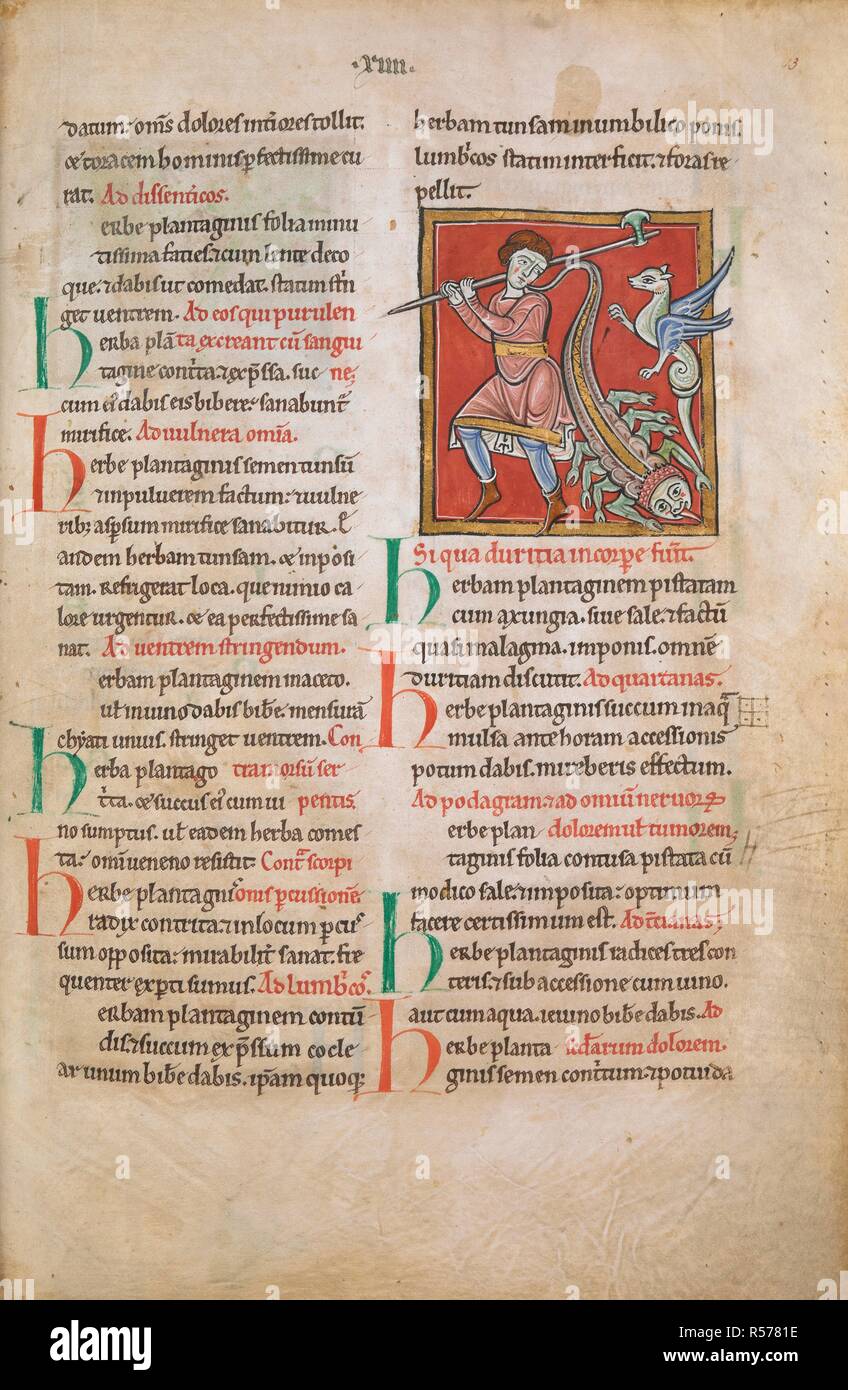 ·xiiii·
13
datum: om̄s dolores int̄iores tollit.
& toracem hominis p̱fectissime cu
rat. Ad dissent̄icos.
erbe plantaginis folia minu
tissima facies: & cum lente deco
que: & dabis ut comedat. statim st̄n
get uentrem. Ad eos qui purulen
herba plā ta excreant cū sangui
tagine cont̄ta & exp̄ssa. suc ne;
cum ei᷒ dabis eis bibere: sanabunt᷑
mirifice. Ad uulnera omīa.
herbe plantaginis semen tunsū
& in puluerem factum: & uulne
rib; asp̱sum mirifice sanabitur. &
andem herbam tunsam. & inposi
tam. Refrigerat loca. que nimio ca
lore urgentur. & ea perfectissime sa
nat. Ad uentrem stringendum.
erbam plantaginem in aceto.
ut̄ in uino dabis bib̄e. mensurā
chyati unius. stringet uentrem. Con
herba plantago tra morsū ser
t̄ta. & succus ei᷒ cum ui pentis;
no sumptus. ut̄ eadem herba comes
ta: omī ueneno resistit. Cont̄ scorpi
herbe plantagnis onis p̱cussionē.
radix contrita & in locum p̱cus
sum opposita: mirabilit̄ sanat. fre
quenter exp̱ti sumus. Ad lumb̄cos.
erbam plantaginem contū
dis. & succum exp̄ssum cocle
ar unum bib̄e dabis. ip̄am quoq;
herbam tunsam in umbilico ponis.
lumb̄cos statim interficit. & foras re
pellit.
Si qua duritia in corp̱e fu̅t̄.
herbam plantaginem pistatam
cum axungia. siue sale. & factū
quasi malagma. imponis. omnē
duritiam discutit. Ad quartanas.
herbe plantaginis succum in aq̄
mulsa ante horam accessionis
potum dabis. miraberis effectum.
Ad podagram: & ad omiū neruoꝝ
erbe plan dolorem ut̄ tumorem;
taginis folia contusa pistata cū
modico sale: & imposita: optimum
facere certissimum est. Ad t̄cianas;
herbe plantaginis radices tres con
teris. & sub accessione cum uino.
aut cum aqua. ieiuno bib̄e dabis. Ad
herbe planta s̄c̄darum dolorem.
ginis semen cont̄tum. & potui da
alamy
alamy stock photo
R5781E
www.alamy.com